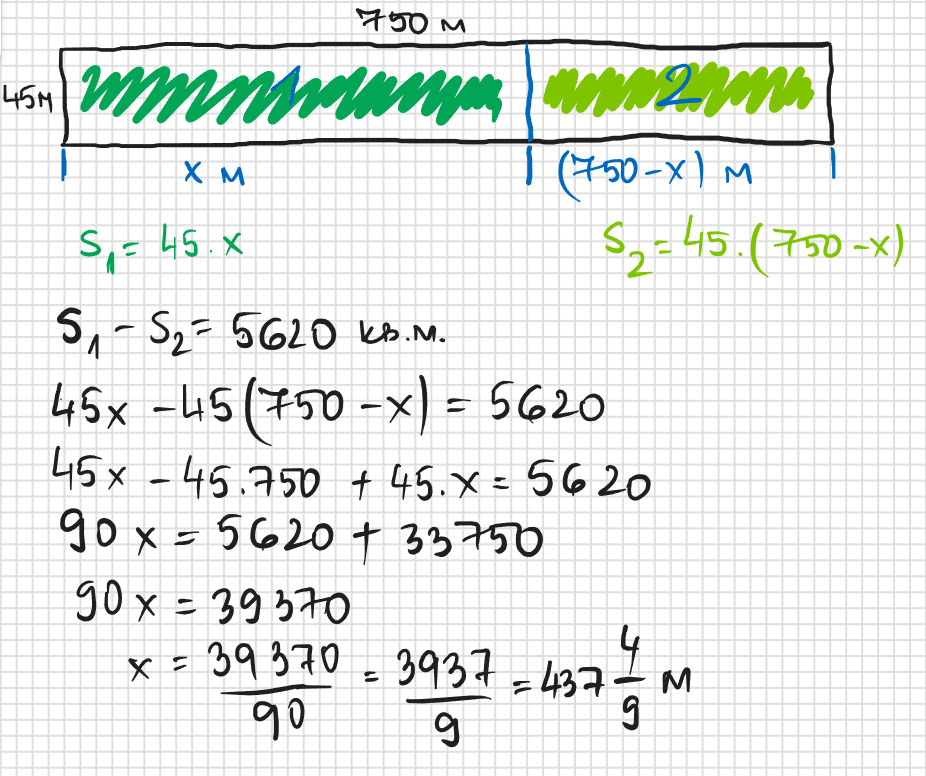 750 м
45м
1
2
x м
(750-x) м
S₁ = 45 . x
S₂ = 45 . (750-x)
S₁ - S₂ = 5620 кв.м.
45x - 45(750 - x) = 5620
45x - 45.750 + 45.x = 5620
90 x = 5620 + 33750
90 x = 39370
x = 39370/90 = 3937/9 = 437 4/9 м